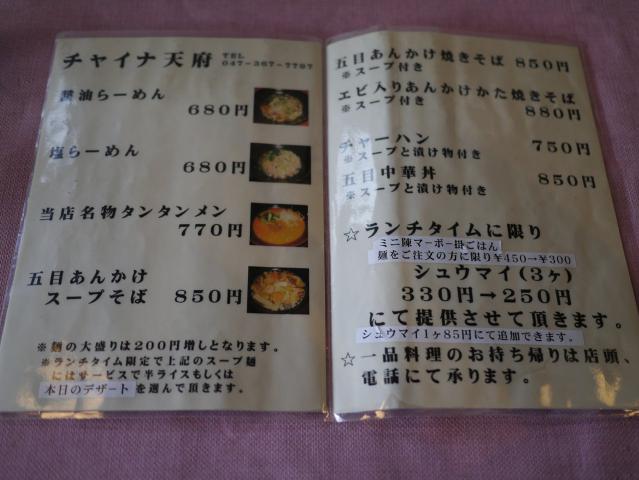 チャイナ天府 TEL 047-367-7797
醤油らーめん
680円
塩らーめん
680円
当店名物タンタンメン
770円
五目あんかけ
スープそば 850円
※麺の大盛りは200円増しとなります。
※ランチタイム限定で上記のスープ麺
にはサービスで半ライスもしくは
本日のデザート を選んで頂きます。
五目あんかけ焼きそば 850円
※スープ付き
エビ入りあんかけかた焼きそば
※スープ付き 880円
チャーハン 750円
※スープと漬け物付き
五目中華丼 850円
※スープと漬け物付き
☆ランチタイムに限り
ミニ陳マーボー掛ごはん
麺をご注文の方に限り¥450→¥300
シュウマイ(3ヶ)
330円→250円
にて提供させて頂きます。
シュウマイ1ヶ85円にて追加できます。
☆一品料理のお持ち帰りは店頭、
電話にて承ります。